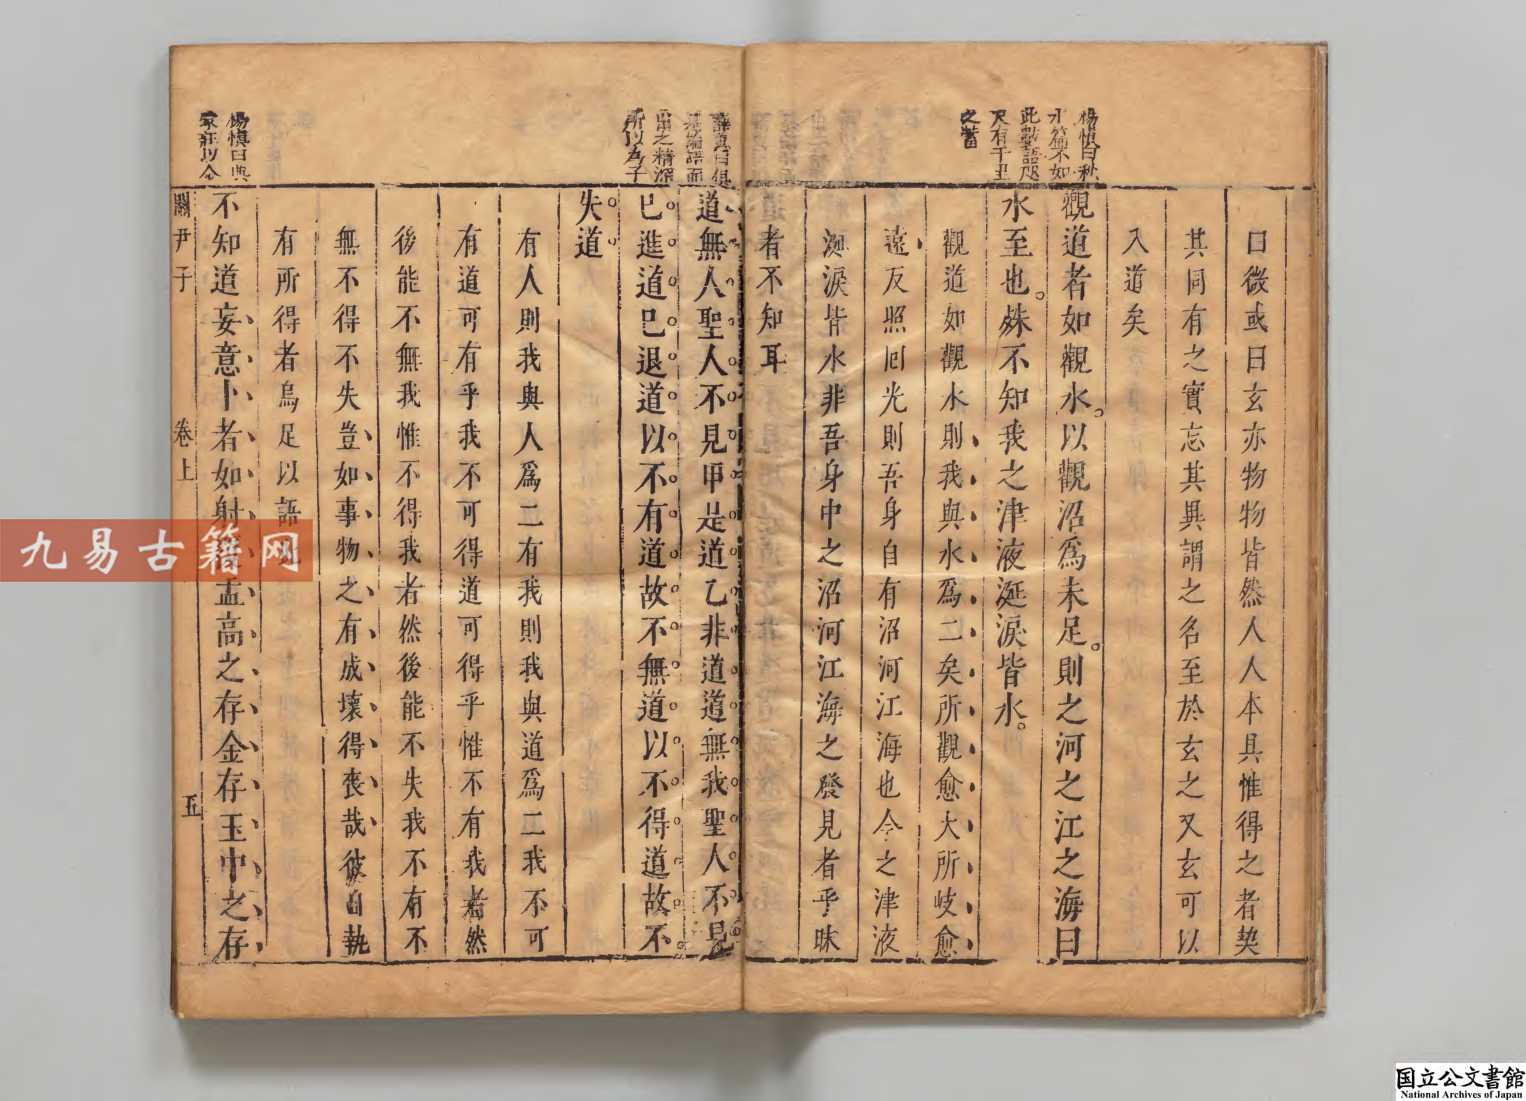 曰微或曰玄亦物物皆然人人本具惟得之者契
其同有之實忘其異謂之名至於玄之又玄可以
入道矣
觀道者如觀水。以觀沼爲未足。則之河之江之海曰
水至也。殊不知我之津液涎淚皆水。
觀道如觀水則我與水爲二矣所觀愈大所岐愈
遠反照囘光則吾身自有沼河江海也今之津液
涎淚皆水非吾身中之沼河江海之發見者乎昧
者不知耳
楊慎曰秋
水篇不如
此數語咫
尺有千里
之蓄
道無人聖人不見甲是道乙非道道無我聖人不見
已進道已退道以不有道故不無道以不得道故不
失道
有人則我與人爲二有我則我與道爲二我不可
有道可有乎我不可得道可得乎惟不有我者然
後能不無我惟不得我者然後能不失我不有不
無不得不失豈如事物之有成壞得喪哉彼自執
有所得者烏足以語
不知道妄意卜者如射盂高之存金存玉中之存
出之精深
所以為子
楊慎曰與
關尹子
卷上
五
九易古籍网
国立公文書館
National Archives of Japan